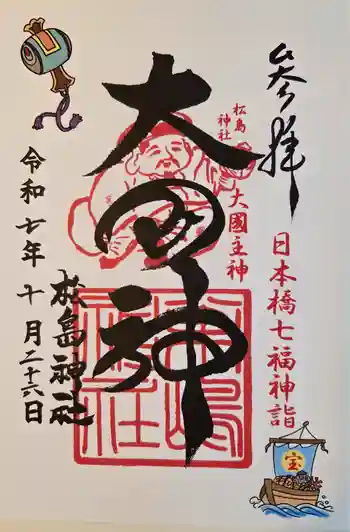 参拝
日本橋七福神詣
松島
神社
大國主神
大国神
松島神社
松島神社
令和七年十月二十六日
宝